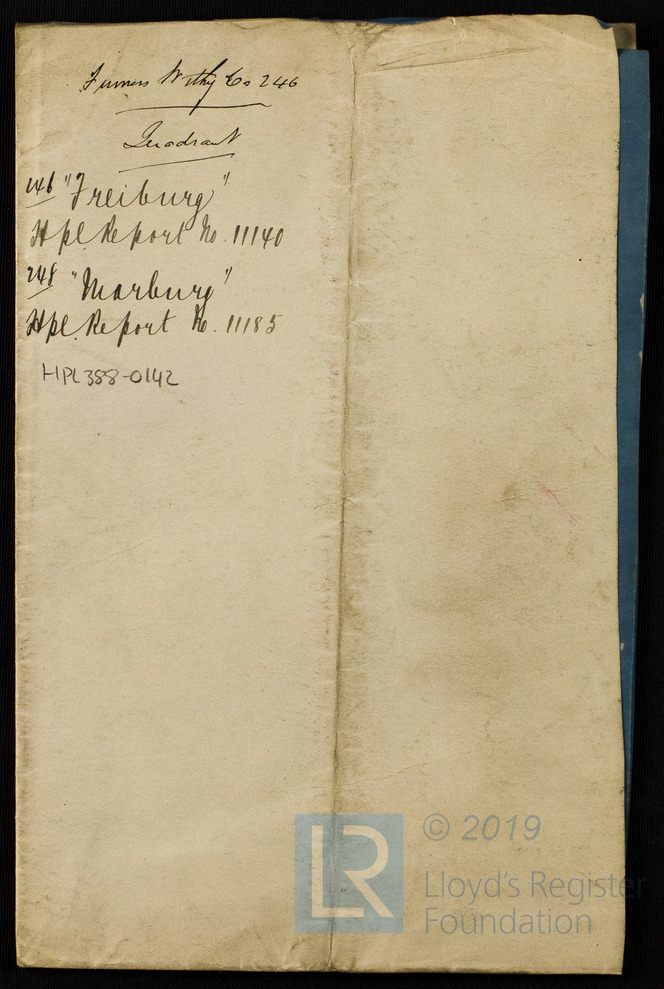 Furness Withy & Co 246
Quadrant
246 "Freiburg"
Hpl. Report No. 11140
248 "Marburg"
Hpl. Report No. 11185
HPL388-0142
LR
© 2019
Lloyd's Register
Foundation